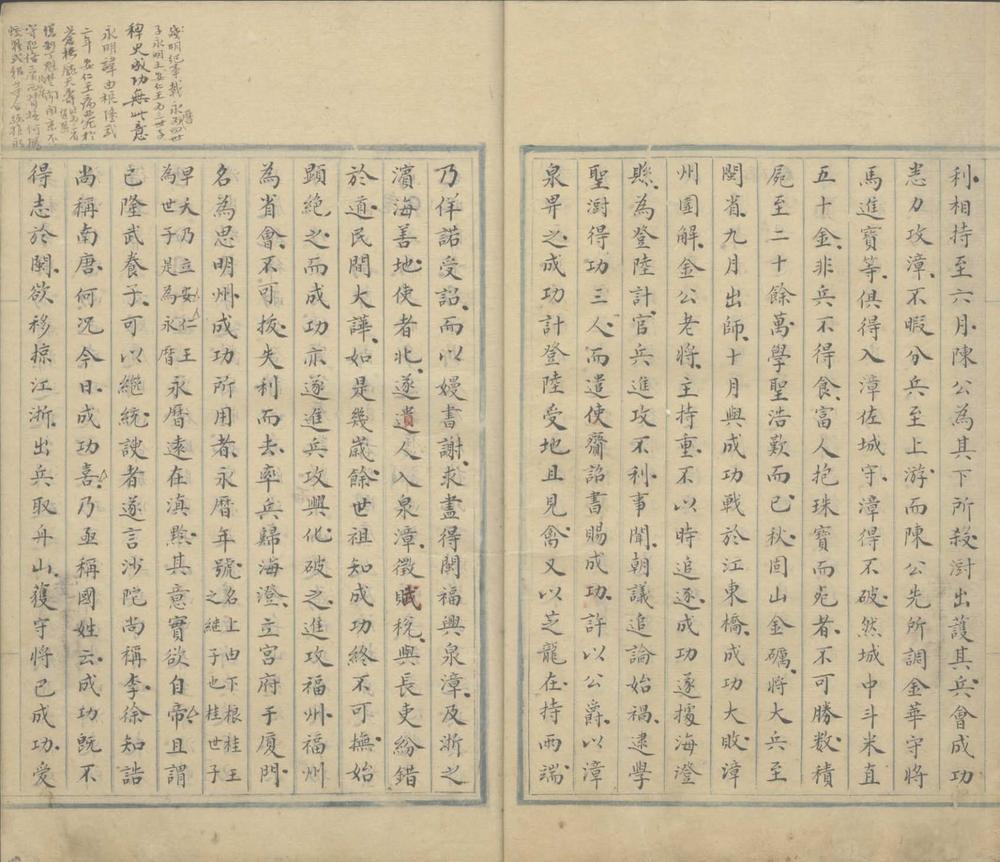 利相持至六月陳公為其下所殺澍出護其兵會成功
悉力攻漳不暇分兵至上游而陳公先所調金華守將
馬進寶等俱得入漳佐城守漳得不破然城中斗米直
五十金非兵不得食富人抱珠寶而死者不可勝數積
屍至二十餘萬學聖浩歎而已秋固山金礪將大兵至
閩省九月出師十月與成功戰於江東橋成功大敗漳
州圍解金公老將主持重不以時追逐成功遂據海澄
縣為登陸計官兵進攻不利事聞朝議追論始禍逮學
聖澍得功三人而遣使齎詔書賜成功許以公爵以漳
泉畀之成功計登陸受地且見禽又以芝龍在持兩端
乃佯諾受詔而以嫚書謝求盡得閩福興泉漳及浙之
濱海善地使者北遂遣人入泉漳徵賦稅與長吏紛錯
於道民間大譁如是幾歲餘世祖知成功終不可撫始
顕絶之而成功亦遂進兵攻興化破之進攻福州福州
為省會不可拔失利而去率兵歸海澄立宮府于廈門
名為思明州成功所用者永曆年號名上由下根桂王
之継子也桂世子
早夭乃立安仁王
為世子是為永曆永曆遠在滇黔其意實欲自帝且謂
己隆武養子可以繼統諛者遂言沙陀尚稱李徐知誥
尚稱南唐何況今日成功喜乃亟稱國姓云成功既不
得志於閩欲移掠江浙出兵取舟山獲守將已成功愛
子永明王安仁王
稗史成功無此意
永明諱由榔隆武
二年安仁王病薨於